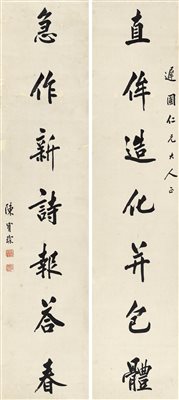 遲園仁兄大人正
直侔造化并包體
急作新詩報答春
陳寶琛